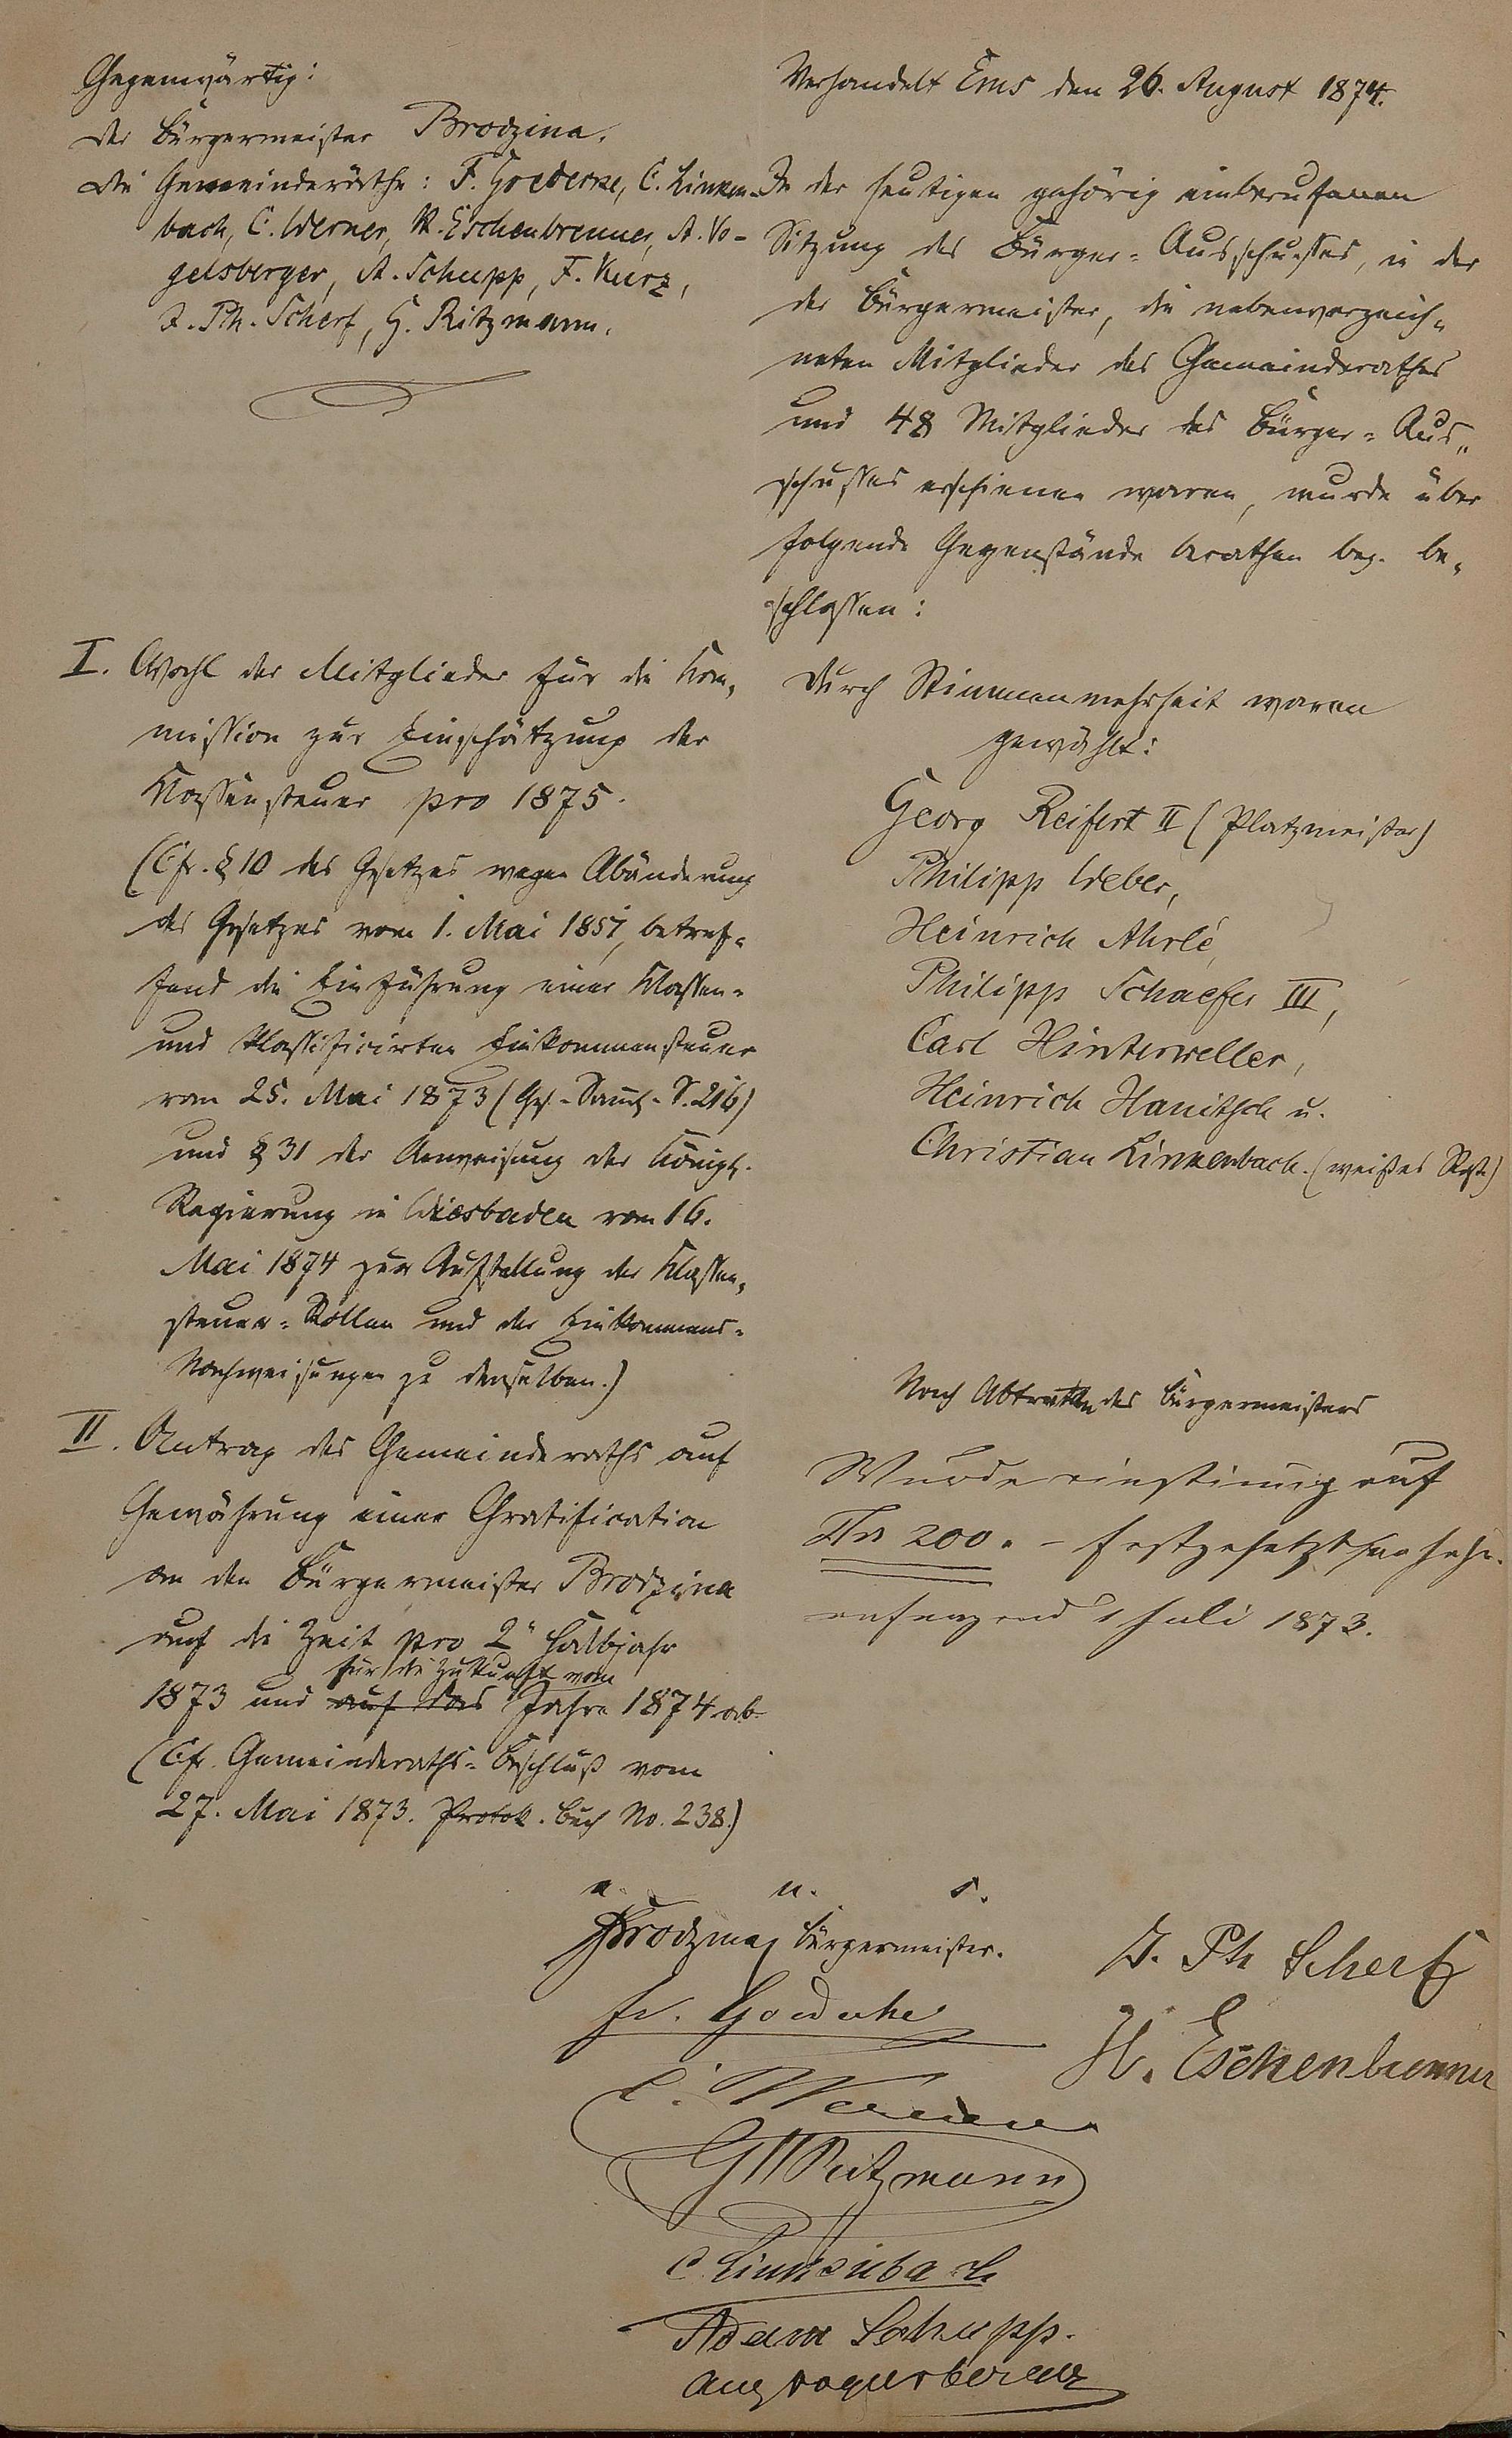 Gegenwärtig:
Der Bürgermeister Brodzina.
Die Gemeinderäthe: F. Goedecke, C. Linken-
bach, C. Werner, H. Eschenbrenner, A. Vo-
gelsberger, A. Schupp, F. Kurz,
J. Ph. Scherf, G. Ritzmann.
Verhandelt Ems den 26. August 1874.
In der heutigen gehörig einberufenen
Sitzung des Bürger-Ausschusses, in der
der Bürgermeister, die nebenverzeich-
neten Mitglieder des Gemeinderathes
und 48 Mitglieder des Bürger-Aus-
schusses erschienen waren, wurde über
folgende Gegenstände berathen bez. be-
schlossen:
I. Wahl der Mitglieder für die Kom-
mission zur Einschätzung der
Klassensteuer pro 1875.
(Cfr. § 10 des Gesetzes wegen Abänderung
des Gesetzes vom 1. Mai 1851, betref-
fend die Einführung einer Klassen-
und klassificirten Einkommensteuer
vom 25. Mai 1873 (Ges.-Samml. S. 216)
und § 31 der Anweisung der Königl.
Regierung in Wiesbaden vom 16.
Mai 1874 zur Aufstellung der Klassen-
steuer-Rollen und der Einkommens-
Nachweisungen zu denselben.)
Durch Stimmenmehrheit waren
gewählt:
Georg Reifert II (Platzmeister)
Philipp Weber,
Heinrich Ahrlé,
Philipp Schaefer III,
Carl Hinterweller,
Heinrich Hanitsch u.
Christian Linkenbach. (weißes Roß)
II. Antrag des Gemeinderaths auf
Gewährung einer Gratification
an den Bürgermeister Brodzina
auf die Zeit pro 2" Halbjahr
für die Zukunft vom
1873 und auf das Jahre 1874 ab
(Cfr. Gemeinderaths-Beschluß vom
27. Mai 1873. Protok. Buch No. 238.)
Nach Abtreten des Bürgermeisters
Wurde einstimig auf
200. – festgesetzt pro Jahr.
anfangend 1 Juli 1873.
a. u. s.
Brodzina, Bürgermeister.
Fr. Goedecke
C. Werner
G Ritzmann
C Linkenbach
Adam Schupp.
Aug Vogelsberger
J. Ph Scherf
H. Eschenbrenner